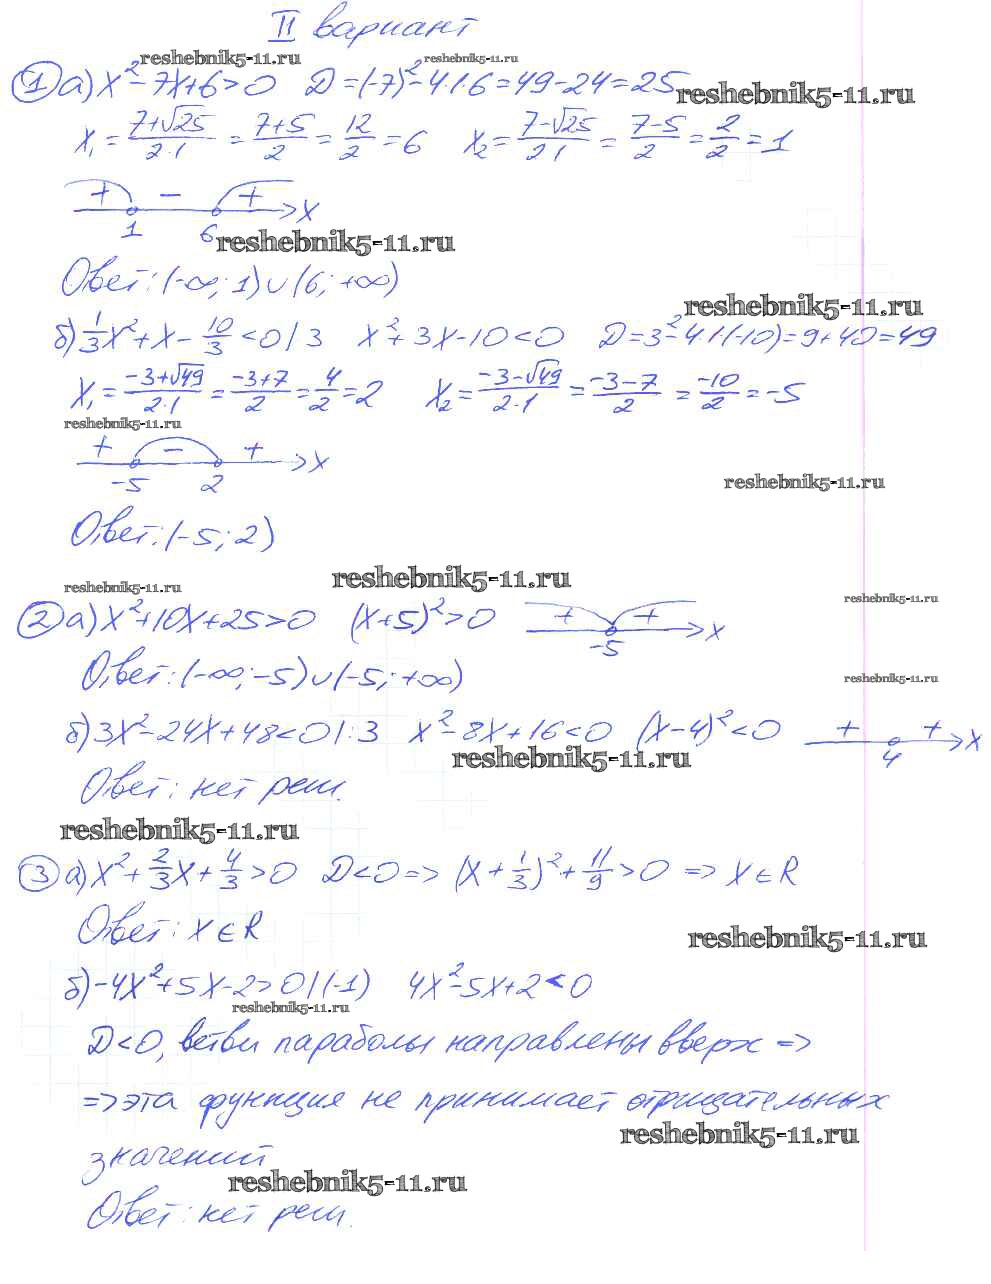 II вариант
reshebnik5-11.ru reshebnik5-11.ru
① а) x² - 7x + 6 > 0 D = (-7)² - 4·1·6 = 49 - 24 = 25 reshebnik5-11.ru
x₁ = (7+√25)/(2·1) = (7+5)/2 = 12/2 = 6 x₂ = (7-√25)/(2·1) = (7-5)/2 = 2/2 = 1
+ - + x
1 6 reshebnik5-11.ru
Ответ: (-∞; 1) ∪ (6; +∞)
reshebnik5-11.ru
б) 1/3 x² + x - 10/3 < 0 | 3 x² + 3x - 10 < 0 D = 3² - 4·1·(-10) = 9 + 40 = 49
x₁ = (-3+√49)/(2·1) = (-3+7)/2 = 4/2 = 2 x₂ = (-3-√49)/(2·1) = (-3-7)/2 = -10/2 = -5
reshebnik5-11.ru
+ - + x
-5 2 reshebnik5-11.ru
Ответ: (-5; 2)
reshebnik5-11.ru reshebnik5-11.ru
reshebnik5-11.ru
② а) x² + 10x + 25 > 0 (x+5)² > 0 + + x
-5
Ответ: (-∞; -5) ∪ (-5; +∞) reshebnik5-11.ru
б) 3x² - 24x + 48 < 0 | :3 x² - 8x + 16 < 0 (x-4)² < 0 + + x
4
reshebnik5-11.ru
Ответ: нет реш.
reshebnik5-11.ru
③ а) x² + 2/3 x + 4/3 > 0 D < 0 => (x + 1/3)² + 11/9 > 0 => x ∈ R
Ответ: x ∈ R reshebnik5-11.ru
б) -4x² + 5x - 2 > 0 | (-1) 4x² - 5x + 2 < 0
reshebnik5-11.ru
D < 0, ветви параболы направлены вверх =>
=> эта функция не принимает отрицательных
reshebnik5-11.ru
значений
reshebnik5-11.ru
Ответ: нет реш.